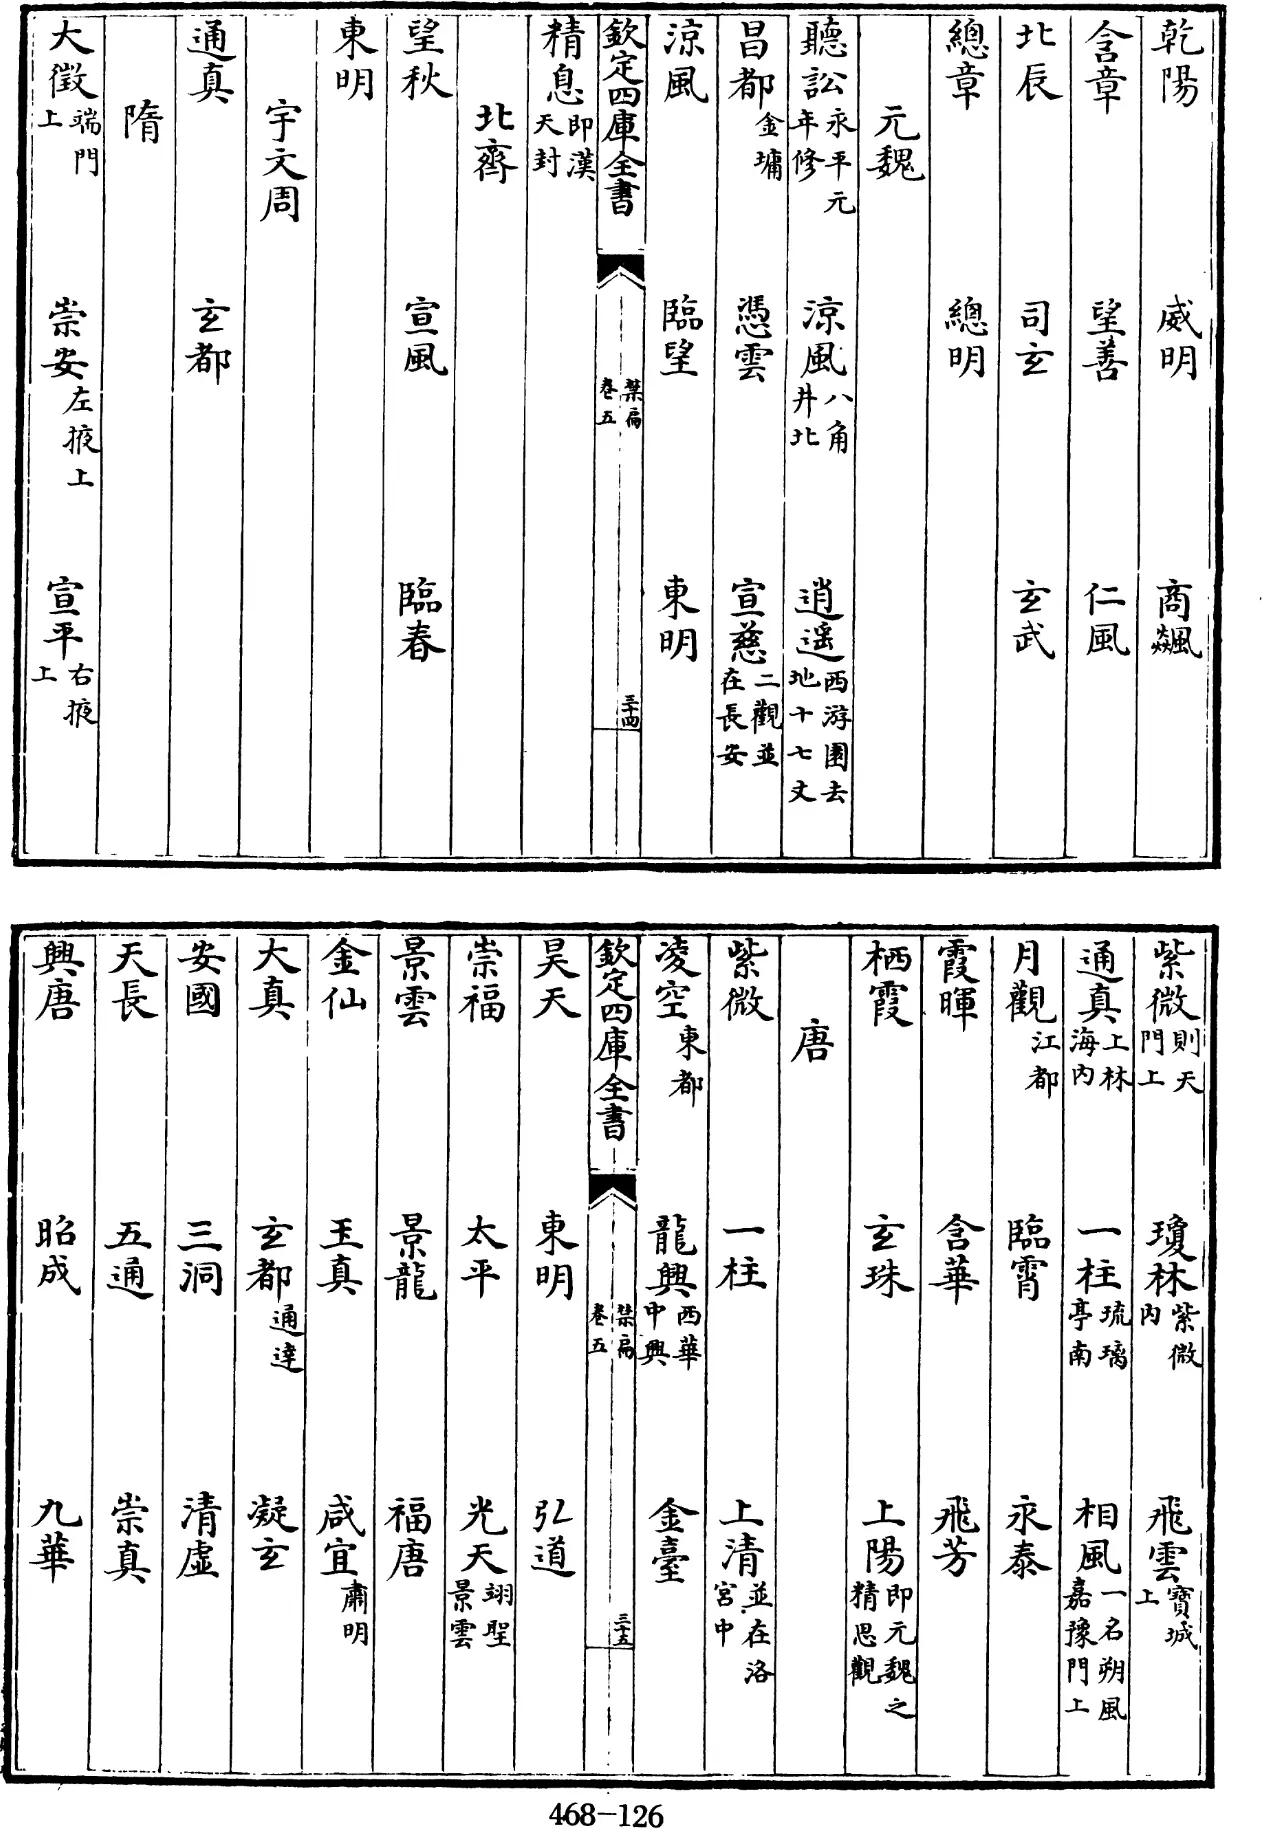 乾陽 威明 商飈
含章 望善 仁風
北辰 司玄 玄武
總章 總明
元魏
聽訟永平元年修 涼風八角井北 逍遥西游園去地十七丈
昌都金墉 憑雲 宣慈二觀並在長安
涼風 臨望 東明
欽定四庫全書 禁扁卷五 三十四
精息即漢天封
北齊
望秋 宣風 臨春
東明
宇文周
通真 玄都
隋
大徵端門上 崇安左掖上 宣平右掖上
紫微則天門上 瓊林紫微内 飛雲寶城上
通真上林海内 一柱琉璃亭南 相風一名朔風嘉豫門上
月觀江都 臨霄 永泰
霞暉 含華 飛芳
栖霞 玄珠 上陽即元魏之精思觀
唐
紫微 一柱 上清並在洛宮中
凌空東都 龍興西華中興 金臺
欽定四庫全書 禁扁卷五 三十五
昊天 東明 弘道
崇福 太平 光天翊聖景雲
景雲 景龍 福唐
金仙 玉真 咸宜肅明
大真 玄都通達 凝玄
安國 三洞 清虛
天長 五通 崇真
興唐 昭成 九華
468-126